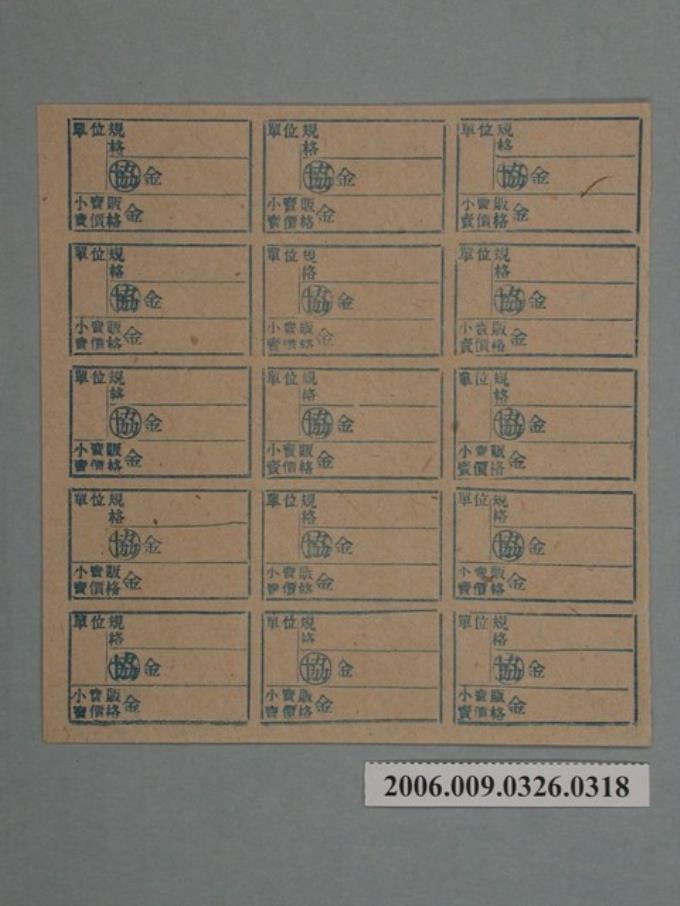 單位規
格
協金
小賣販
賣價格金
單位規
格
協金
小賣販
賣價格金
單位規
格
協金
小賣販
賣價格金
單位規
格
協金
小賣販
賣價格金
單位規
格
協金
小賣販
賣價格金
單位規
格
協金
小賣販
賣價格金
單位規
格
協金
小賣販
賣價格金
單位規
格
協金
小賣販
賣價格金
單位規
格
協金
小賣販
賣價格金
單位規
格
協金
小賣販
賣價格金
單位規
格
協金
小賣販
賣價格金
單位規
格
協金
小賣販
賣價格金
單位規
格
協金
小賣販
賣價格金
單位規
格
協金
小賣販
賣價格金
單位規
格
協金
小賣販
賣價格金
2006.009.0326.0318